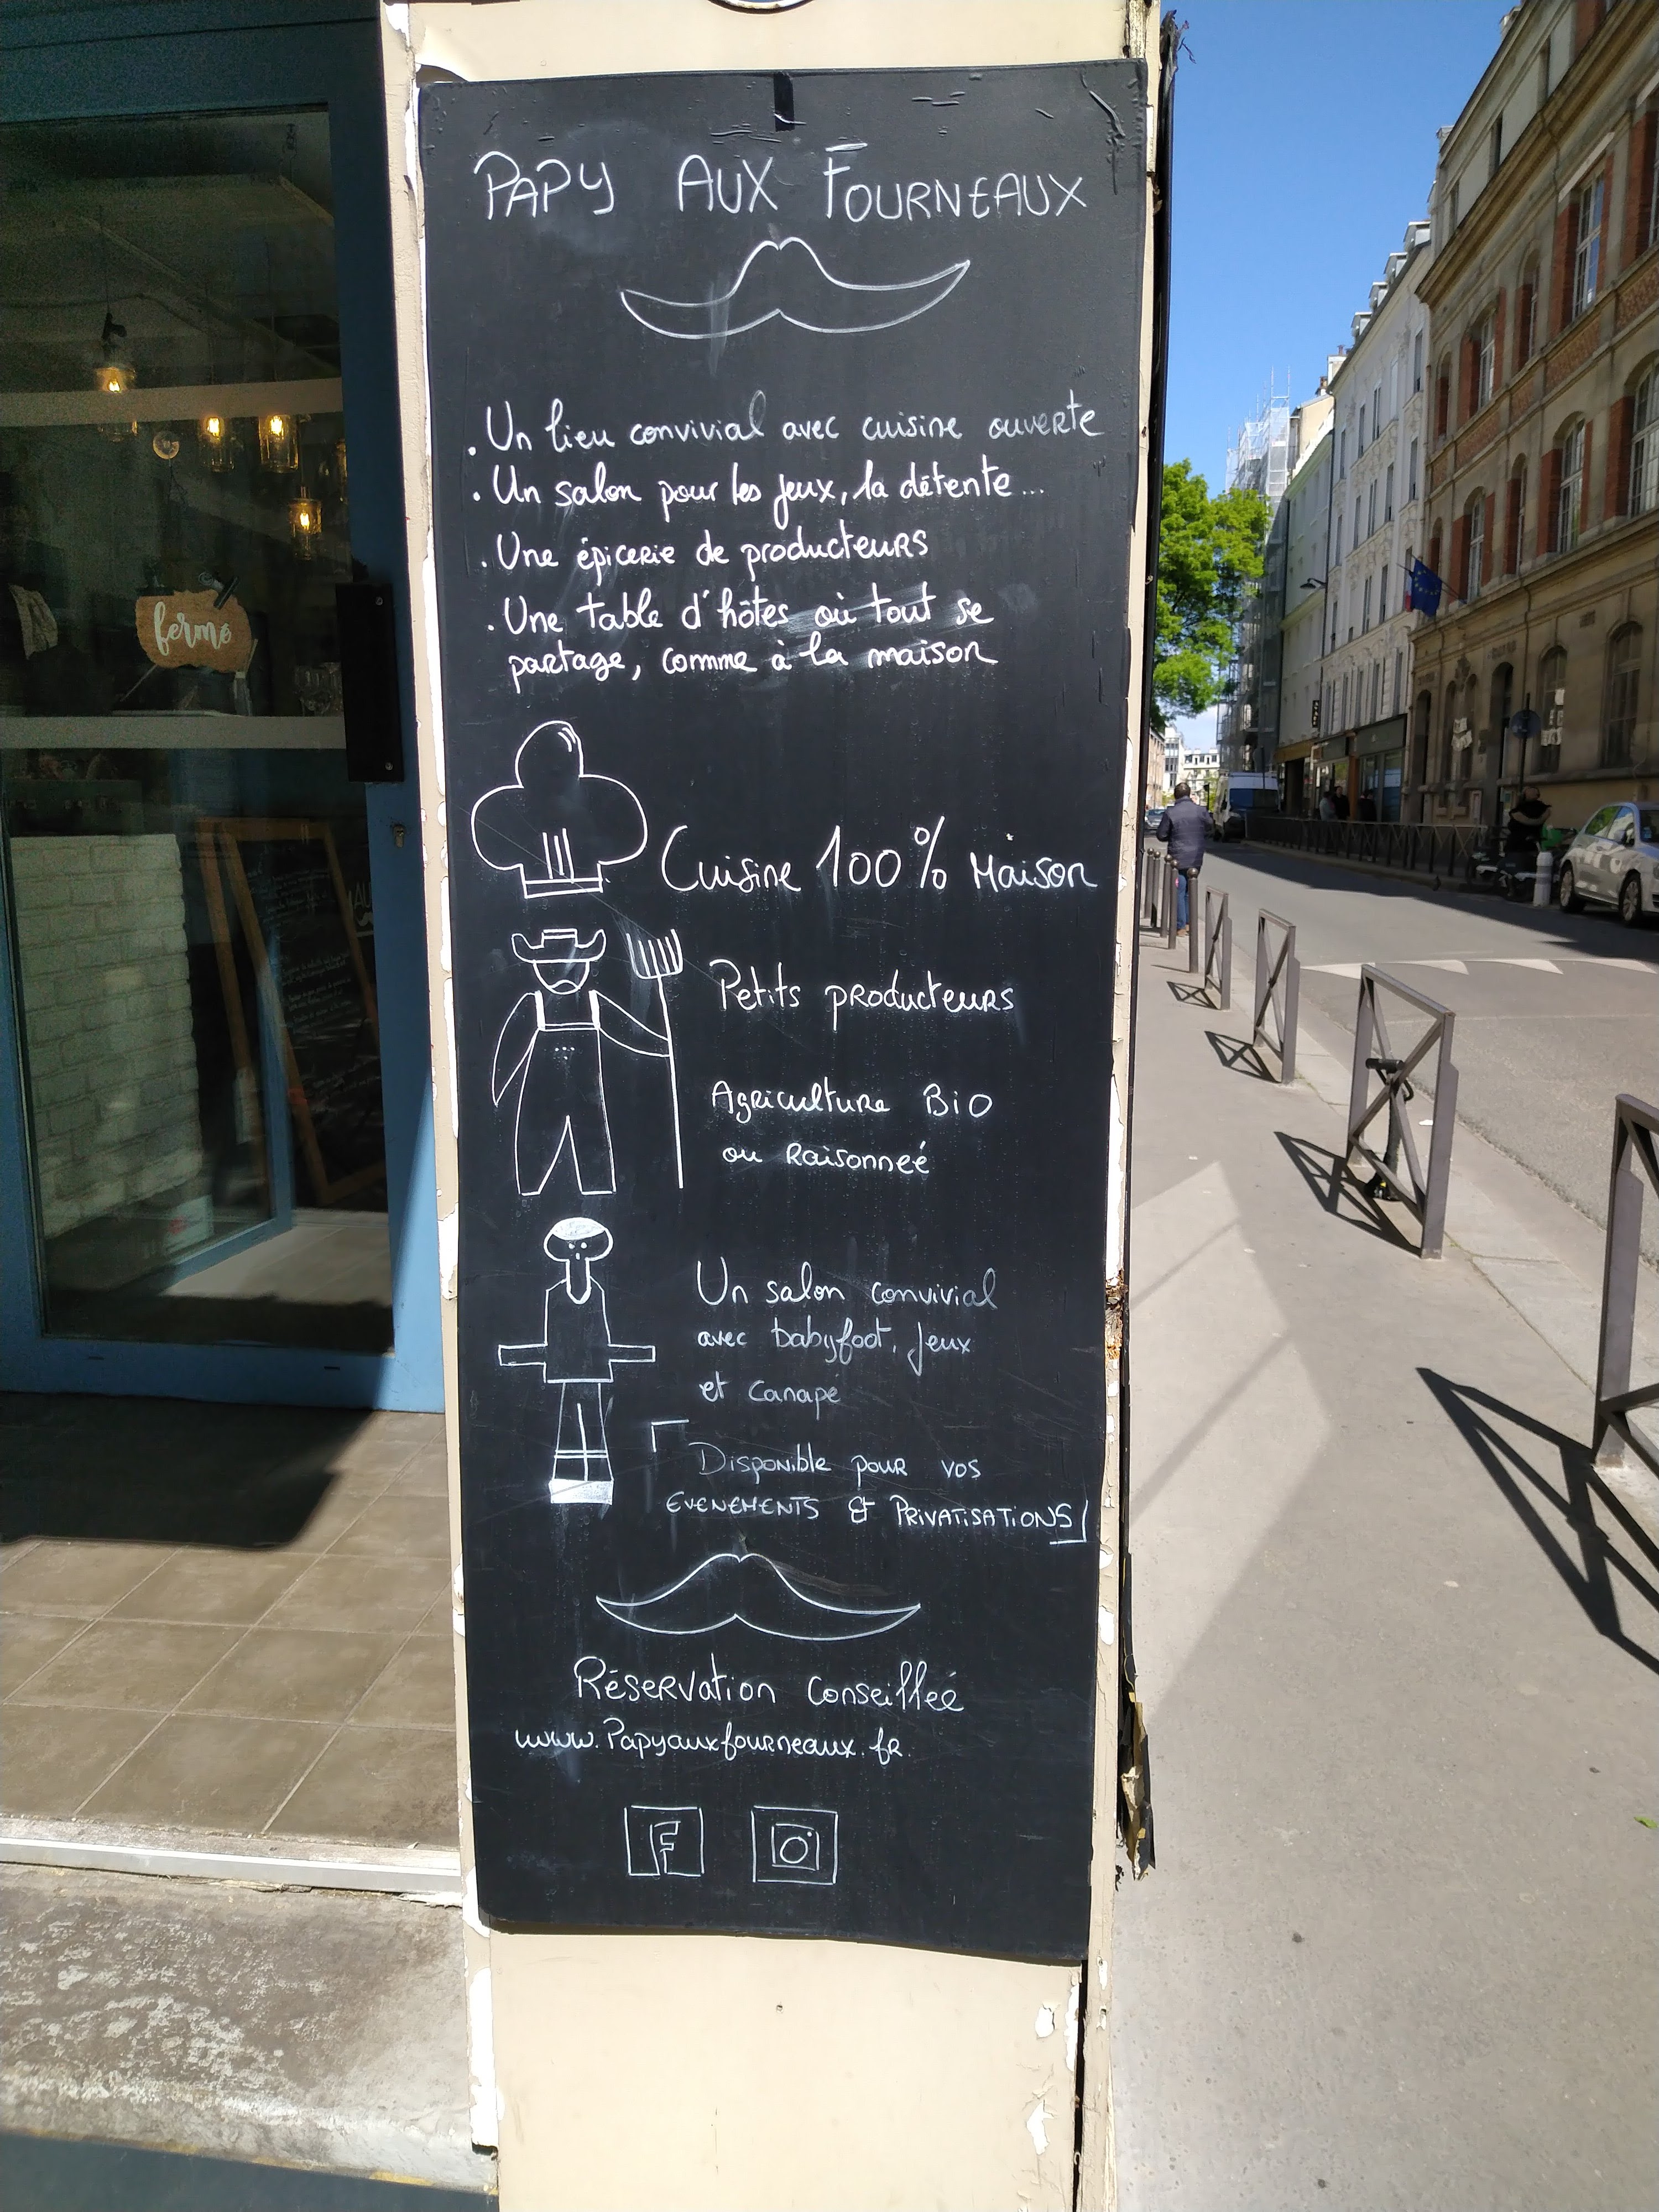 PAPY AUX FOURNEAUX
. Un lieu convivial avec cuisine ouverte
. Un salon pour les jeux, la détente...
. Une épicerie de producteurs
. Une table d'hôtes où tout se
partage, comme à la maison
fermé
Cuisine 100% Maison
Petits producteurs
Agriculture BiO
ou Raisonneé
Un salon convivial
avec babyfoot, jeux
et canapé
Disponible pour vos
EVENEMENTS Et PRIVATISATIONS
Réservation conseilleé
www.Papyauxfourneaux.fr
F